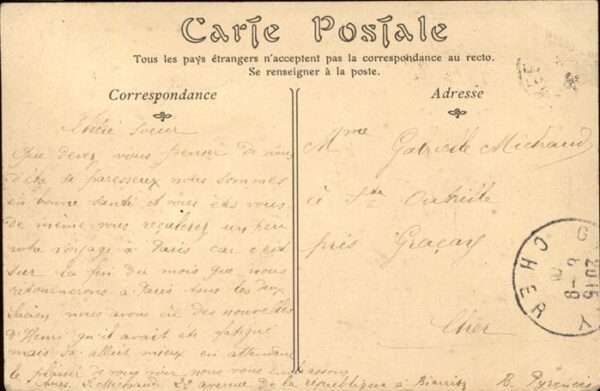 Carte Postale
Tous les pays étrangers n'acceptent pas la correspondance au recto.
Se renseigner à la poste.
Correspondance
Chère Soeur
Que devez vous penser de nous
d'être si paresseux nous sommes
en bonne santé et vous
de même vous
voyage à Paris car c'est
sur la fin du mois que nous
retournerons à Paris tous les deux
nous avons eu des nouvelles
d'Henri qu'il avait été fatigué
mais sa allait mieux en attendant
le plaisir de vous voir nous vous embrassons
22 avenue de la république à Biarritz B. Pyrénées
Adresse
Mme Gabrielle Michaud
à Ste
près Graçay
Cher
CHER